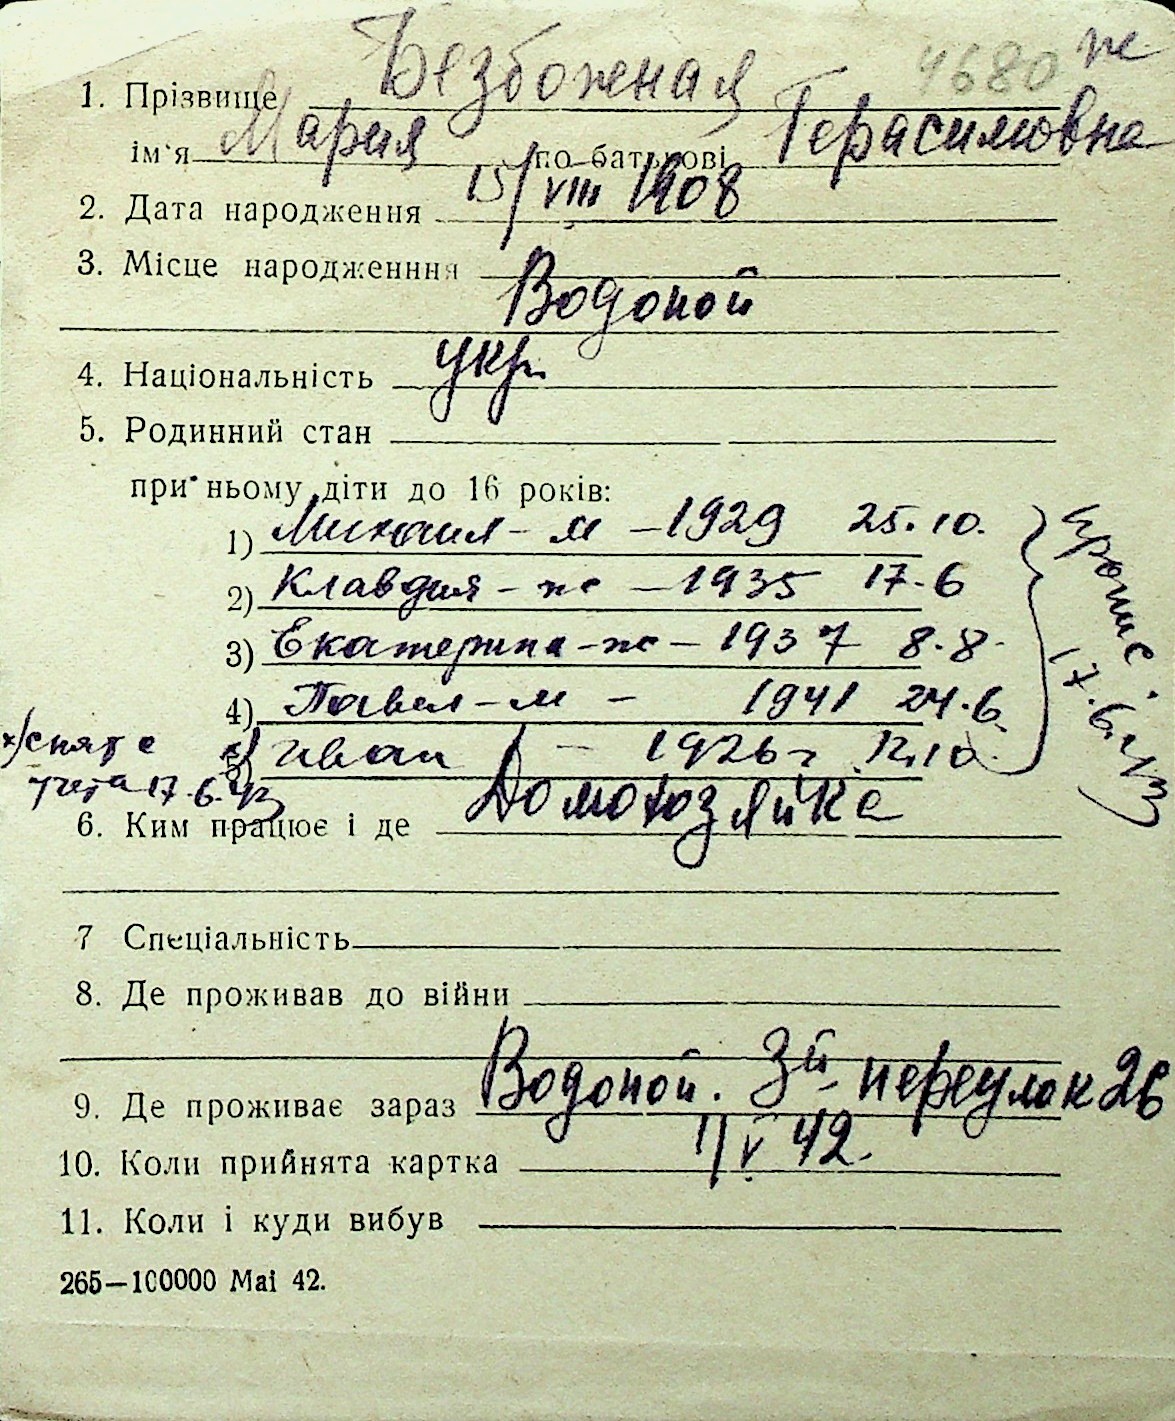 4680 ж
1. Прізвище Безбоженая
ім'я Мария по батькові Герасимовна
2. Дата народження 15/VIII 1908
3. Місце народженння
Водопой
4. Національність укр.
5. Родинний стан
при ньому діти до 16 років:
1) Михаил - м - 1929 25.10.
2) Клавдия - ж - 1935 17.6
3) Екатерина - ж - 1937 8.8.
4) Павел - м - 1941 24.6.
5) Иван - 1926 г. 12.10.
х) снят с
учета 17.6.42
17.6.42
6. Ким працює і де Домохозяйка
7 Спеціальність
8. Де проживав до війни
9. Де проживає зараз Водопой. 3й переулок 26
10. Коли прийнята картка 1/V 42.
11. Коли і куди вибув
265—100000 Маі 42.